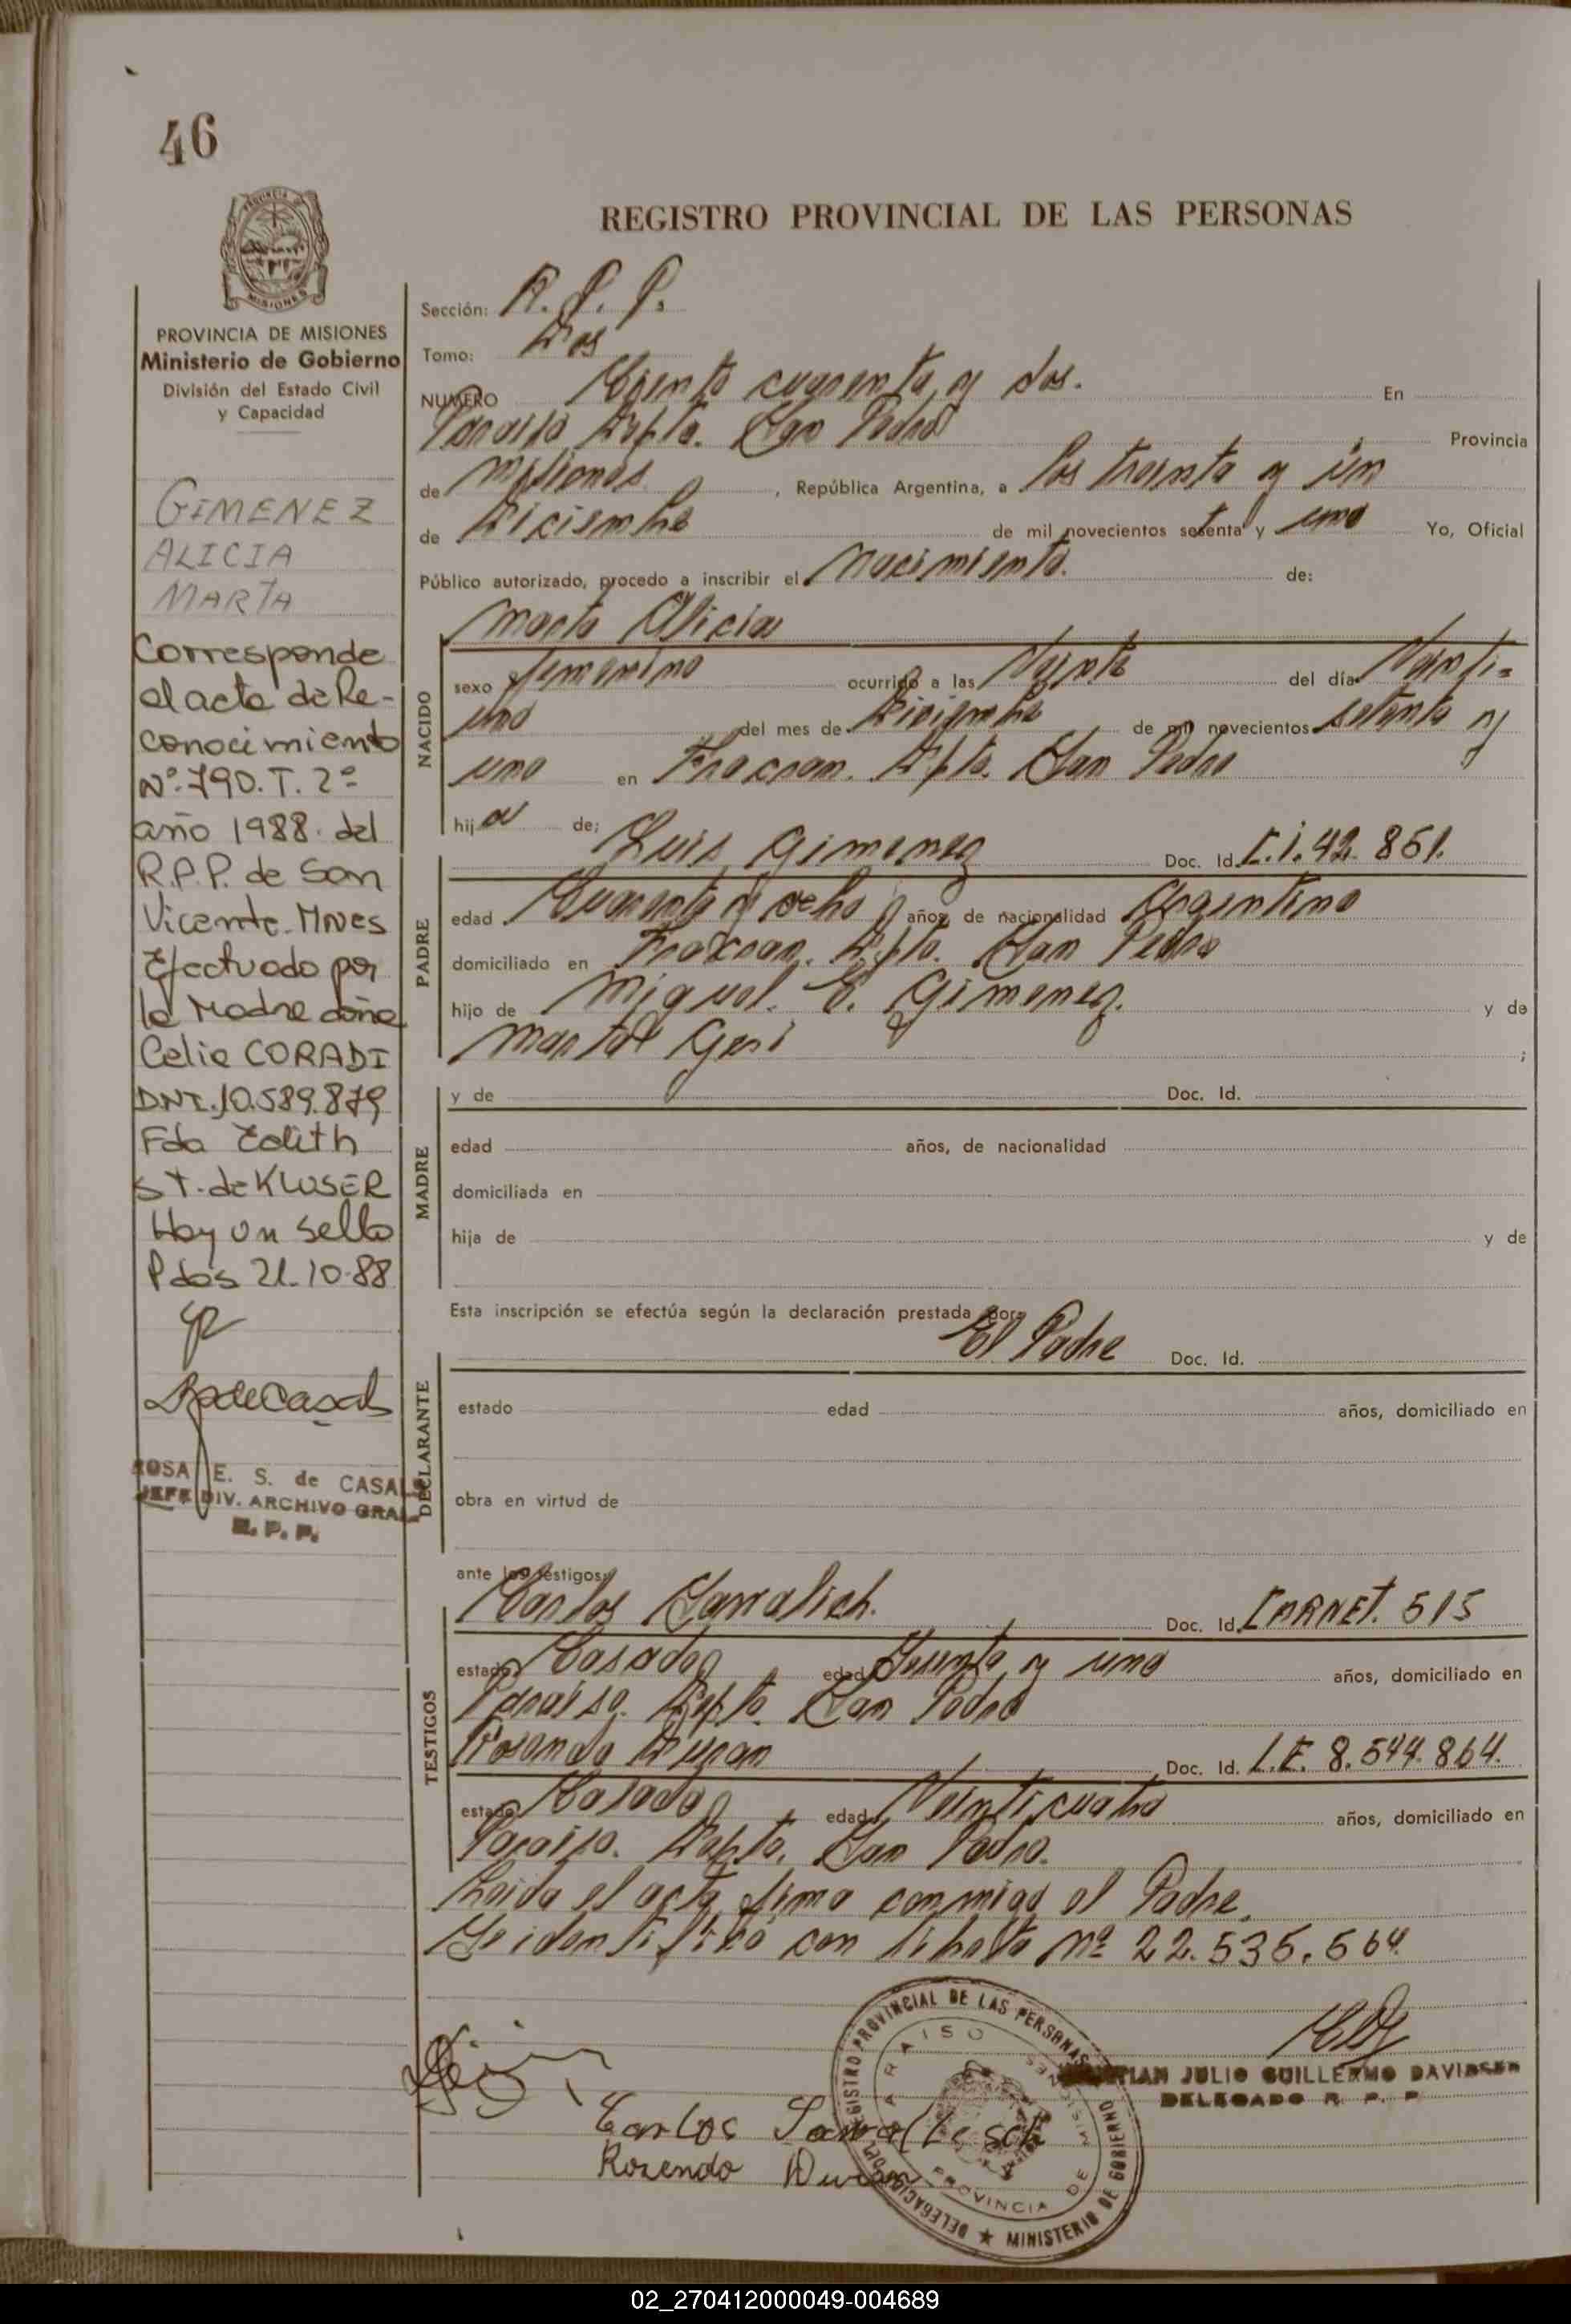 46
REGISTRO PROVINCIAL DE LAS PERSONAS
PROVINCIA DE MISIONES
Ministerio de Gobierno
División del Estado Civil
y Capacidad
GIMENEZ
ALICIA
MARTA
Corresponde
al acta de Re-
conocimiento
Nº 790. T. 2º
año 1988. del
R.P.P. de San
Vicente. Mnes
Efectuado por
la Madre doña
Celia CORADI
DNI. 10.589.879
Fdo Edith
ST. de KLUSER
Hay un sello
Pdas 21-10-88
ROSA E. S. de CASALS
JEFE DIV. ARCHIVO GRAL
R. P. P.
Sección: R. P. P.
Tomo: Dos
NUMERO Ciento cuarenta y dos. En
Paraiso Dpto. San Pedro Provincia
de Misiones, República Argentina, a los treinta y un
de Diciembre de mil novecientos setenta y uno Yo, Oficial
Público autorizado, procedo a inscribir el Nacimiento. de:
Marta Alicia
NACIDO
sexo femenino ocurrido a las Veinte del día Veinti=
uno del mes de Diciembre de mil novecientos setenta y
uno en Fracran. Dpto. San Pedro
hija de; Luis Gimenez Doc. Id. C.I. 42.851.
PADRE
edad Cuarenta y ocho años, de nacionalidad Argentino
domiciliado en Fracran. Dpto. San Pedro
hijo de Miguel. E. Gimenez. y de
Marta ;
MADRE
y de Doc. Id.
edad años, de nacionalidad
domiciliada en
hija de y de
Esta inscripción se efectúa según la declaración prestada por:
El Padre Doc. Id.
DECLARANTE
estado edad años, domiciliado en
obra en virtud de
ante los testigos:
Carlos Doc. Id. CARNET. 515
TESTIGOS
estado Casado edad Treinta y uno años, domiciliado en
Paraiso. Dpto. San Pedro
Rosendo Duran Doc. Id. L.E. 8.544.864.
estado Casado edad Veinticuatro años, domiciliado en
Paraiso. Dpto. San Pedro.
Leida el acta firma conmigo el Padre.
Se identificó con libreta Nº 22.535.564.
JULIO GUILLERMO DAVIDSEN
DELEGADO R. P. P.
Carlos
Rosendo Duran
REGISTRO PROVINCIAL DE LAS PERSONAS
PARAISO
MISIONES
PROVINCIA DE
DELEGACION ★ MINISTERIO DE GOBIERNO
02_270412000049-004689